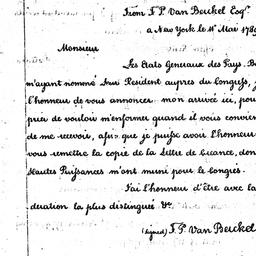 From F. P. Van Berckel Esqr.
a New York le 1r Mai 1789
Monsieur
Les Etats Generaux des Pays-B
m'ayant nommé leur Resident aupres du Congress, j
l'honneur de vous annoncer mon arrivée ici, pour
prer de vouloir m'enformer quand il vous convien
de me recevoir, afin que je puisse avoir l'honneur
vous remettre la copie de la Lettre de Creance, don
Hautes Puissances m'ont muni pour le Congrès.
J'ai l'honneur d'être avec la
deration la plus distingué &c.
(signed) F. P. Van Berckel